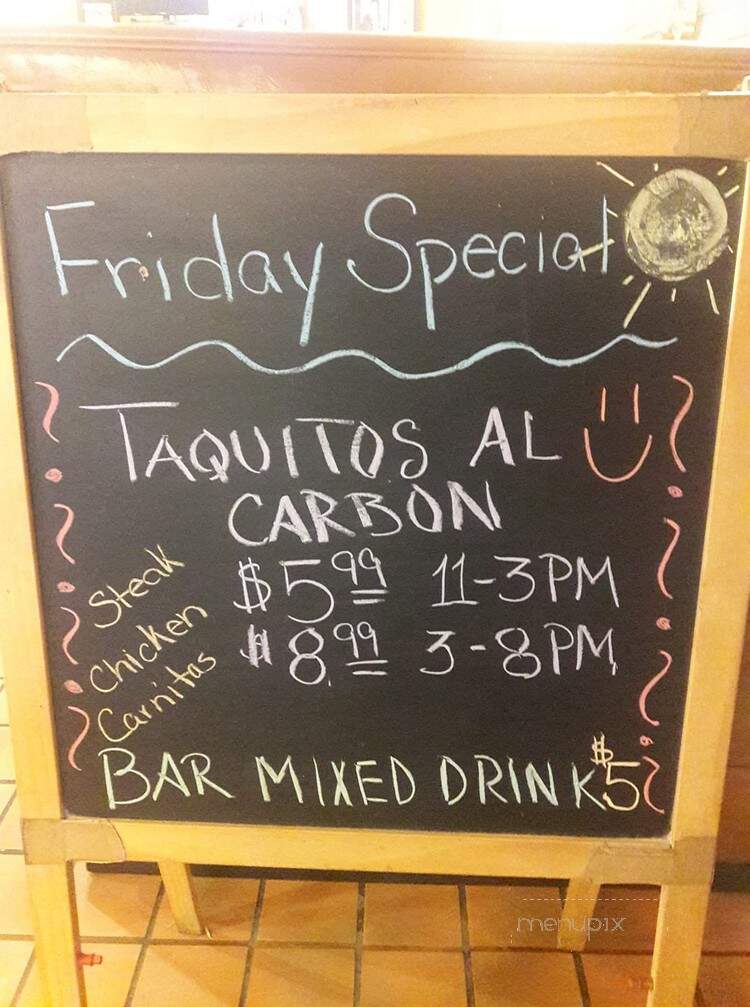 Friday Special
TAQUITOS AL
CARBON
Steak
$5.99 11-3PM
Chicken
$8.99 3-8PM
Carnitas
BAR MIXED DRINK $5
menupix